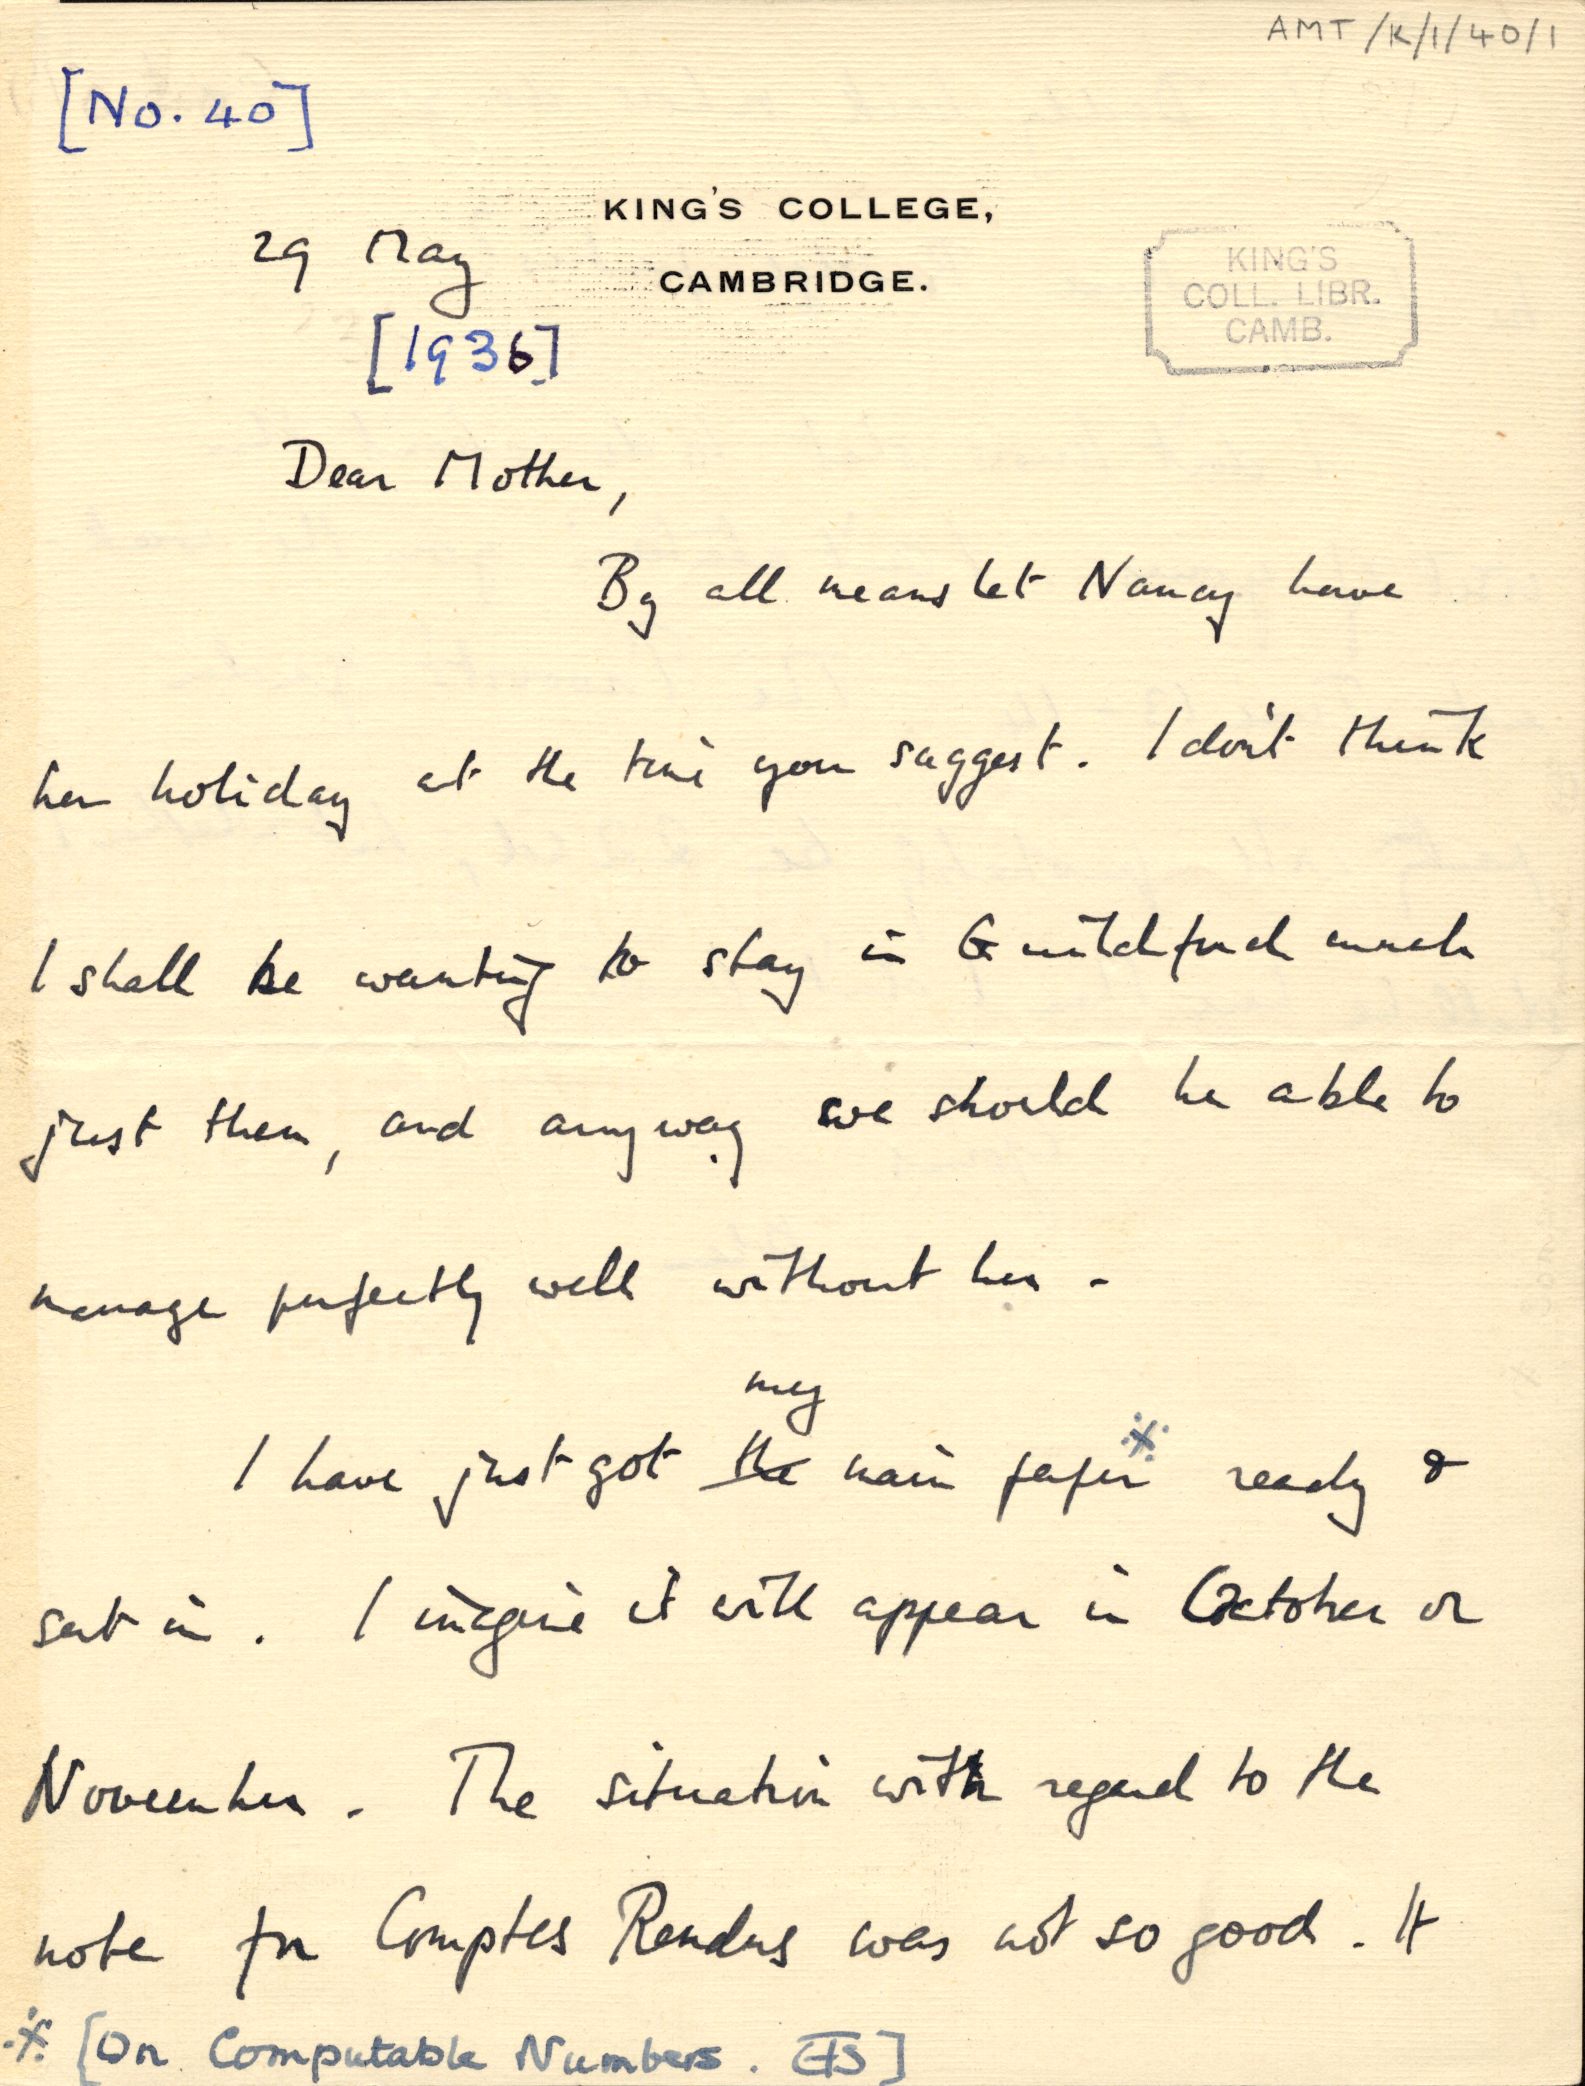 AMT/K/1/40/1
[No. 40]
KING'S COLLEGE,
CAMBRIDGE.
29 May
[1936]
KING'S
COLL. LIBR.
CAMB.
Dear Mother,
By all means let Nancy have
her holiday at the time you suggest. I don't think
I shall be wanting to stay in Guildford much
just then, and anyway we should be able to
manage perfectly well without her.
my
I have just got the main paper※ ready &
sent in. I imagine it will appear in October or
November. The situation with regard to the
note for Comptes Rendus was not so good. It
※ [On Computable Numbers. ETS]